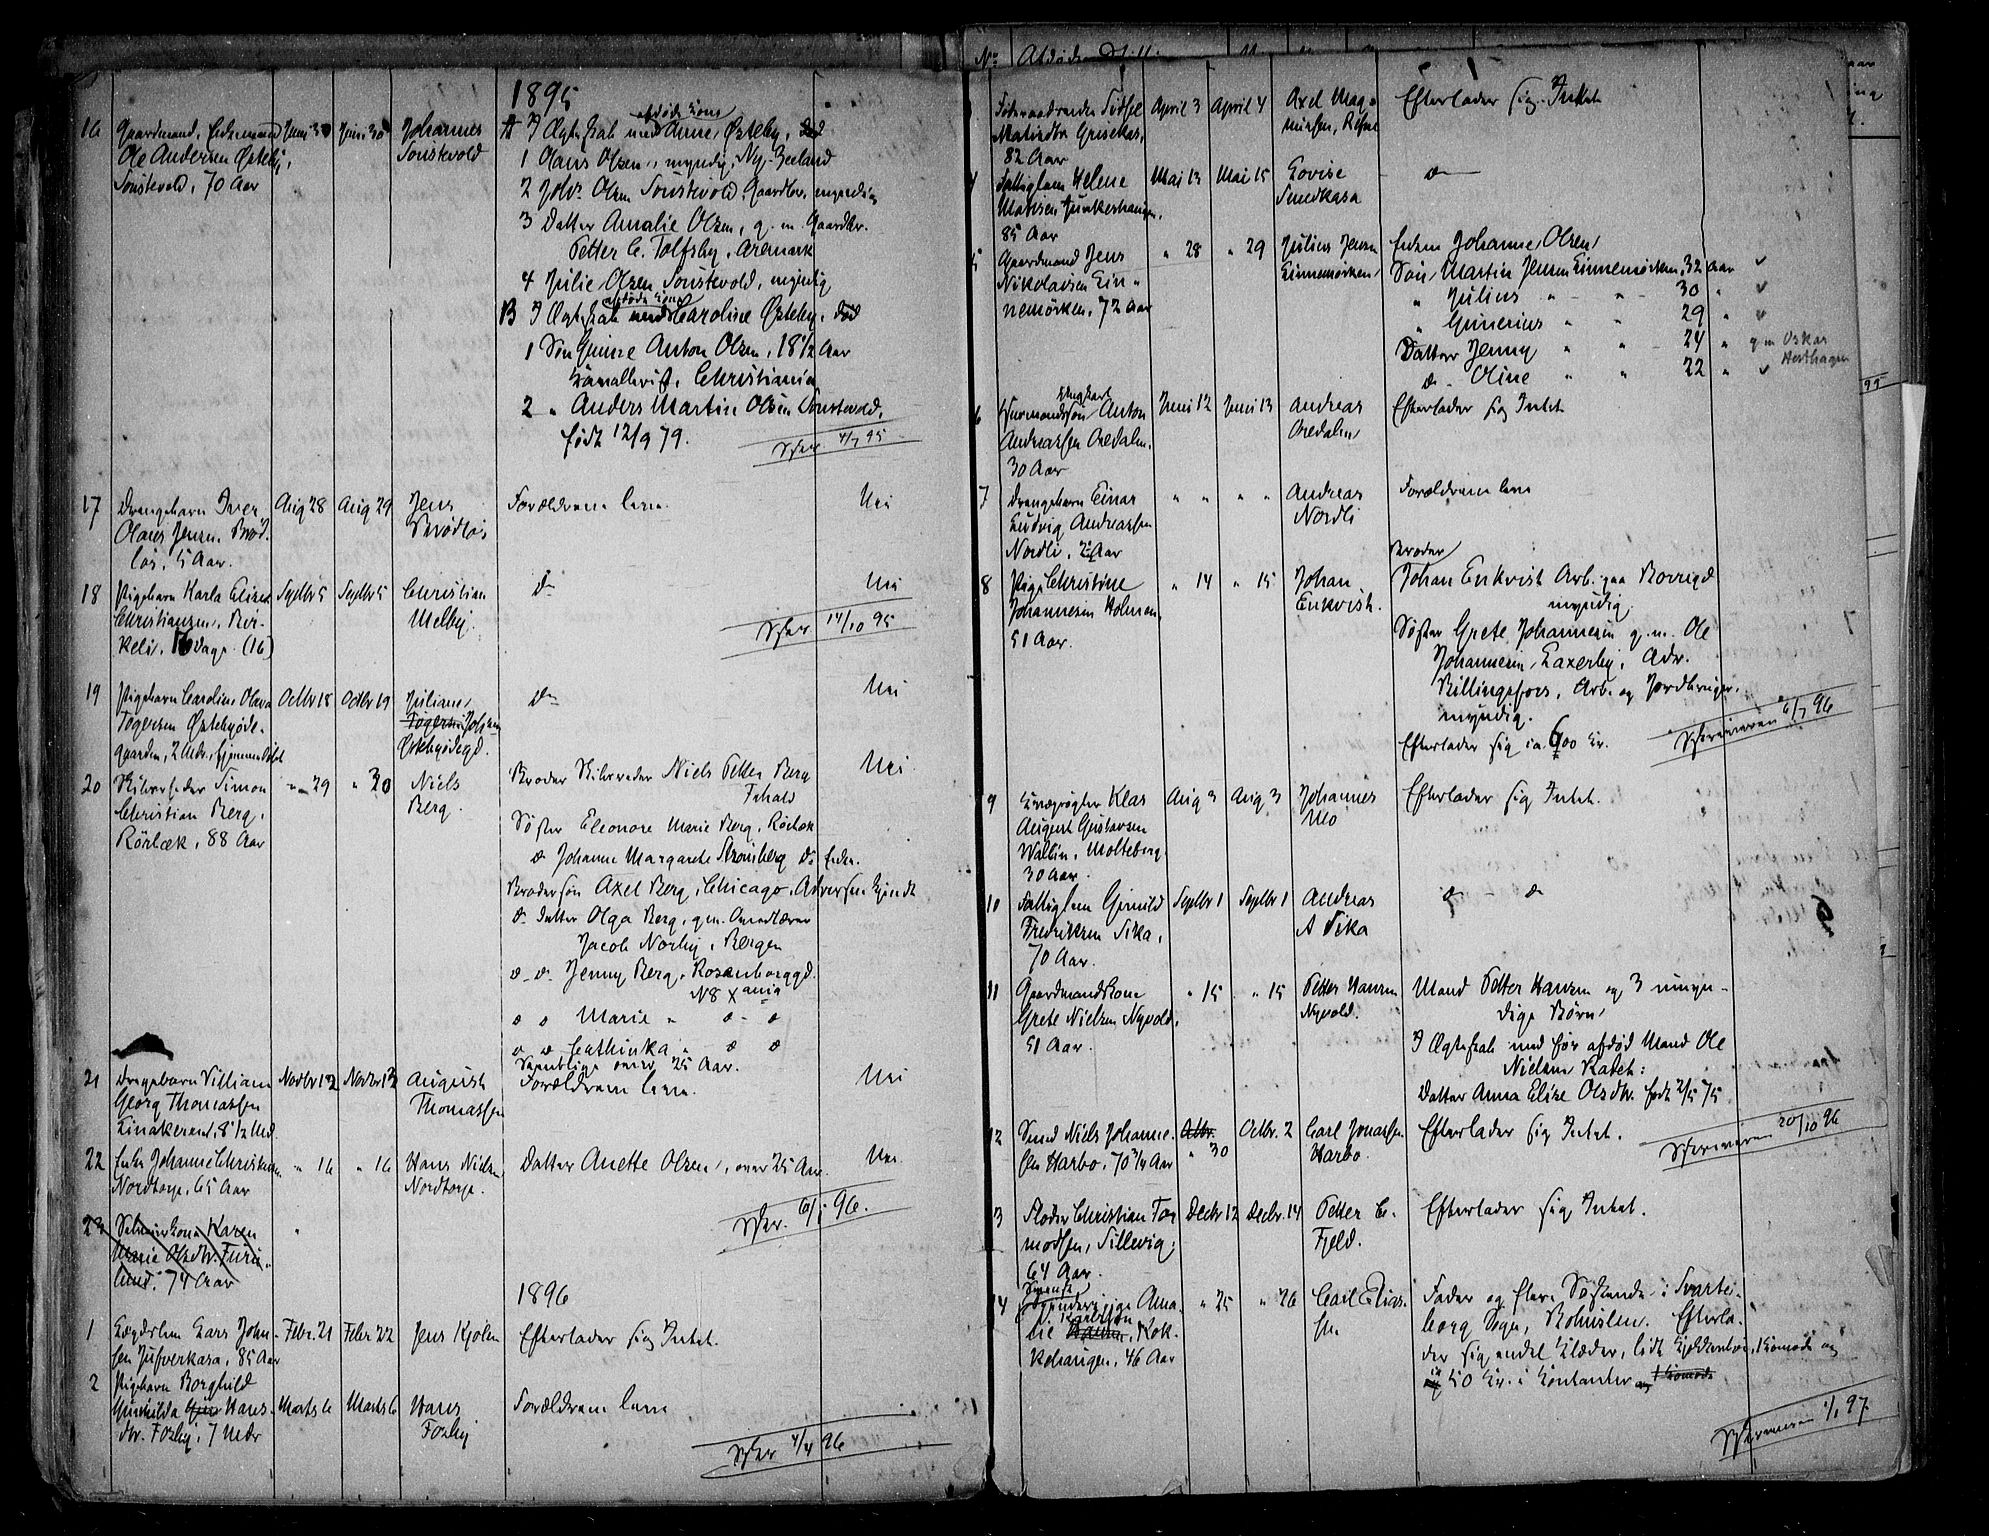 1895
16 Gaardmand, Enkemand Juni 30 Juni 30 Johannes A I Ægteskab med afdøde Kone Anne Østeby, død
Ole Andersen Østeby, Sonstevold 1 Olaus Olsen, myndig, Ny-Zeeland
Sonstevold, 70 Aar 2 Johs. Olsen Sonstevold, Gaardbr. myndig
3 Datter Amalie Olsen, g. m. Gaardbr.
Petter C. Tolfsby, Aremark
4 Julie Olsen Sonstevold, myndig
B I Ægteskab med afdøde Kone Caroline Østeby, død
1 Søn Anton Olsen, 18 1/2 Aar
Christiania
2 " Anders Martin Olsen Sonstevold,
født 12/9 79.
4/7 95
17 Drengebarn Iver Aug 28 Aug 29 Jens Forældrene leve Nei
Olaus Jensen Brød-
løs, 5 Aar. Brødløs
18 Pigebarn Karla Elise Septbr 5 Septbr 5 Christian do Nei
Christiansen, Bir- Melby.
keli, 16 Dage (16)
14/10 95
19 Pigebarn Caroline Olava Octbr 18 Octbr 19 Juliane do Nei
Tøgersen Østebyøde-
gaarden, 2 Mdr., hjemmedøbt Østebyødegd.
20 Simon " 29 " 30 Niels Broder Niels Petter Berg Nei
Christian Berg, Berg.
Rørbæk, 88 Aar Søster Eleonore Marie Berg, Rørbæk
do Johanne Margarete Stromberg do Enke.
Brodersøn Axel Berg, Chicago, Adresse Ukjendt
do Datter Olga Berg, g. m.
Jacob Norby, Bergen
do do Jenny Berg, Rosenborggd.
No 8 Xania
do do Marie " do do
do do Cathinka " do do
Samtlige over 25 Aar.
21 Drengebarn Villiam Novbr 12 Novbr 13 August Forældrene leve. Nei
Georg Thomassen Thomassen
8 1/2 Md.
22 Enke Johanne Christensen " 16 " 16 Hans Nielsen Datter Anette Olsen, over 25 Aar. Nei
Nordtorp, 65 Aar Nordtorp.
6/1 96.
23 Kone Karen "
Marie Olsdtr. Furu-
lund, 74 Aar
1896
1 Lægdslem Lars John- Febr. 21 Febr 22 Jens Kjølen Efterlader sig Intet.
sen Jufverkasa, 85 Aar
2 Pigebarn Borghild
Gunhilda Hans- Marts 6 Marts 6 Hans Forældrene leve
dtr. Foxby, 7 Mdr Foxby
4/4 96
3 Sidse April 3 April 4 Axel Mag- Efterlader sig Intet
Matisdtr Grisekas, nussen,
82 Aar
4 Fattiglem Helene Mai 13 Mai 15 Lovise do
Matisen Junkerhaugen, Smedkasa
85 Aar
5 Gaardmand Jens " 28 " 29 Julius Jensen Enken Johanne Olsen
Nikolaisen Lin- Linnemørken Søn Martin Jensen Linnemørken, 32 Aar
nemørken, 72 Aar " Julius " " 30 "
" Gunerius " " 29 "
Datter Jenny " " 24 " g m Oskar
do Oline " " 22 "
6 Husmandssøn Ungkarl Anton Juni 12 Juni 13 Andreas Efterlader sig Intet
Andreassen Aredalen, Aredalen
30 Aar
7 Drengebarn Einar " " " " Andreas Forældrene leve
Ludvig Andreassen Nordli
Nordli, 2 Aar
8 Pige Christine " 14 " 15 Johan Broder Johan Enkvist Arb. paa Borregd
Johannesen Holmen, Enkvist. myndig.
51 Aar. Søster Grete Johannesen g. m. Ole
Johannesen Laxerby, Adr.
Billingsfors, Arb. og Jordbruger,
myndig.
Efterlader sig ca. 600 Kr.
6/7 96
9 Klas Aug 3 Aug 3 Johannes Efterlader sig Intet.
August Gustavsen Mo
Wallin, Molteberg.
30 Aar.
10 Fattiglem Gunild Septbr 1 Septbr 1 Andreas do do
Fredriksen Sika, A Sika
70 Aar.
11 Gaardmandskone " 15 " 15 Petter Hansen Mand Petter Hansen og 3 umyn-
Grete Nielsen Nyvold, Nyvold. dige Børn
51 Aar. I Ægteskab med før afdød Mand Ole
Nielsen
Datter Anna Elise Olsdtr. født 2/5 75
12 Smed Niels Johanne- Octbr. Octbr. 2 Carl Jonassen Efterlader sig Intet.
sen Harbo, 70 3/4 Aar " 30 Harbo.
20/10 96
13 Christian Tor- Decbr 12 Decbr. 14 Petter C. Efterlader sig Intet.
modsen, Sillevig, Fjeld.
64 Aar.
14 Svensk Ama- " 25 " 26 Carl Elias- Fader og flere Søskende i Svarte-
lie Karlsson, Kok- sen. borg Sogn, Bohuslen. Efterla-
kehaugen, 46 Aar der sig endel Klæder, lidt, Komode og
ca 50 Kr. i Kontanter og 1 Komode
1/1 97